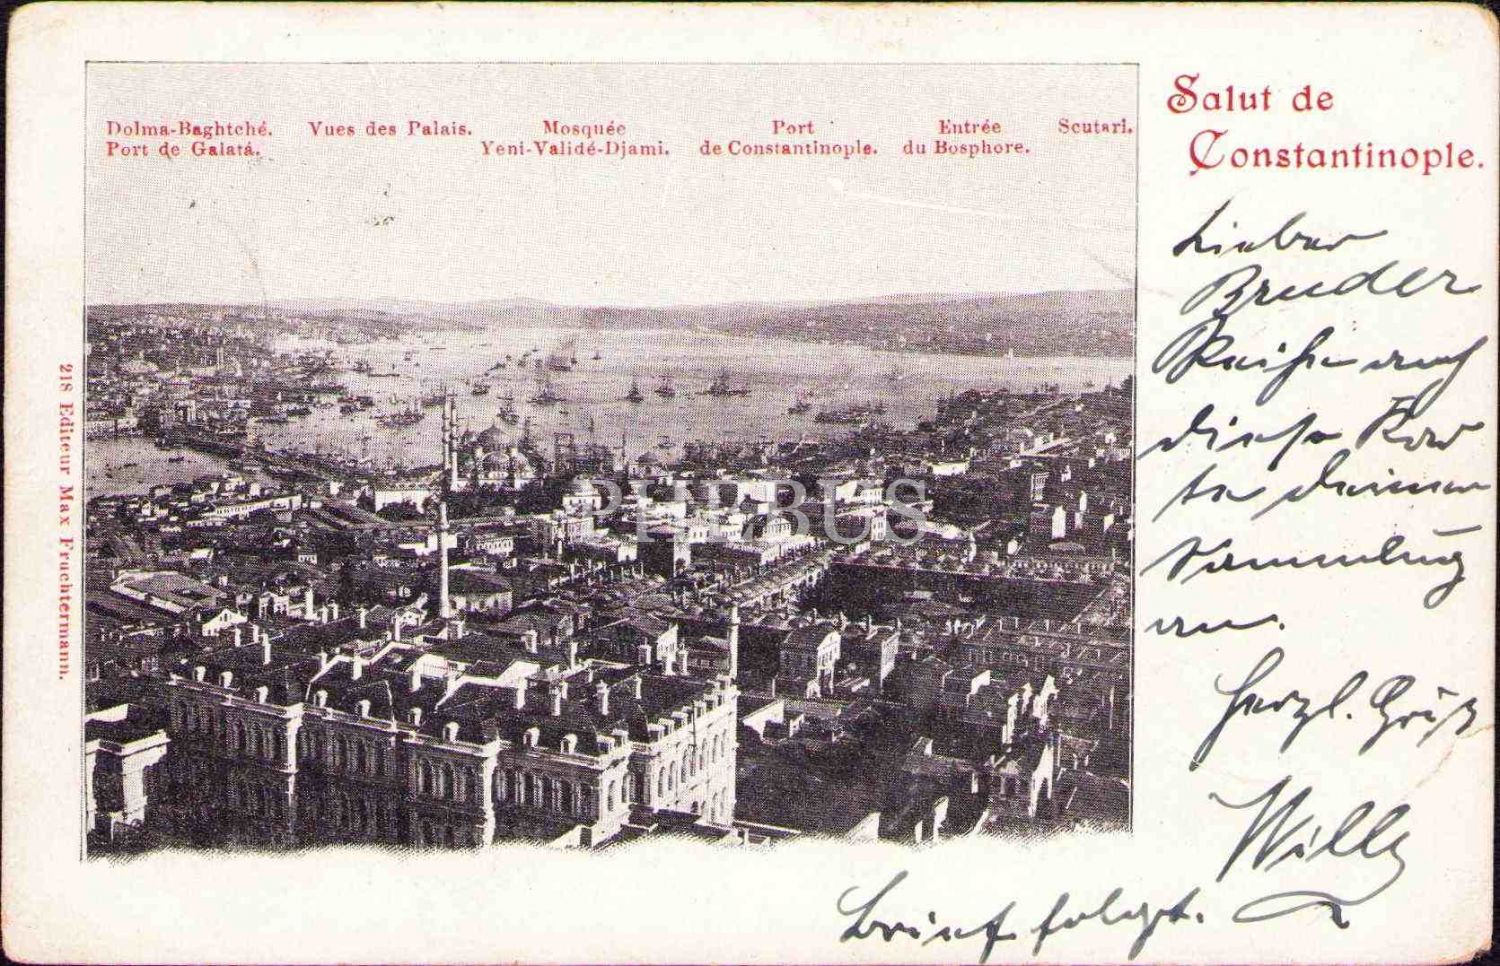 Salut de
Constantinople.
Dolma-Baghtché. Vues des Palais. Mosquée Port Entrée Scutari.
Port de Galatá. Yeni-Validé-Djami. de Constantinople. du Bosphore.
218 Editeur Max Fruchtermann.
PHEBUS
Lieber
Bruder
Reihe auch
diese Kar
te deiner
Sammlung
an.
Herzl. Gruß
Willy
Brief folgt.